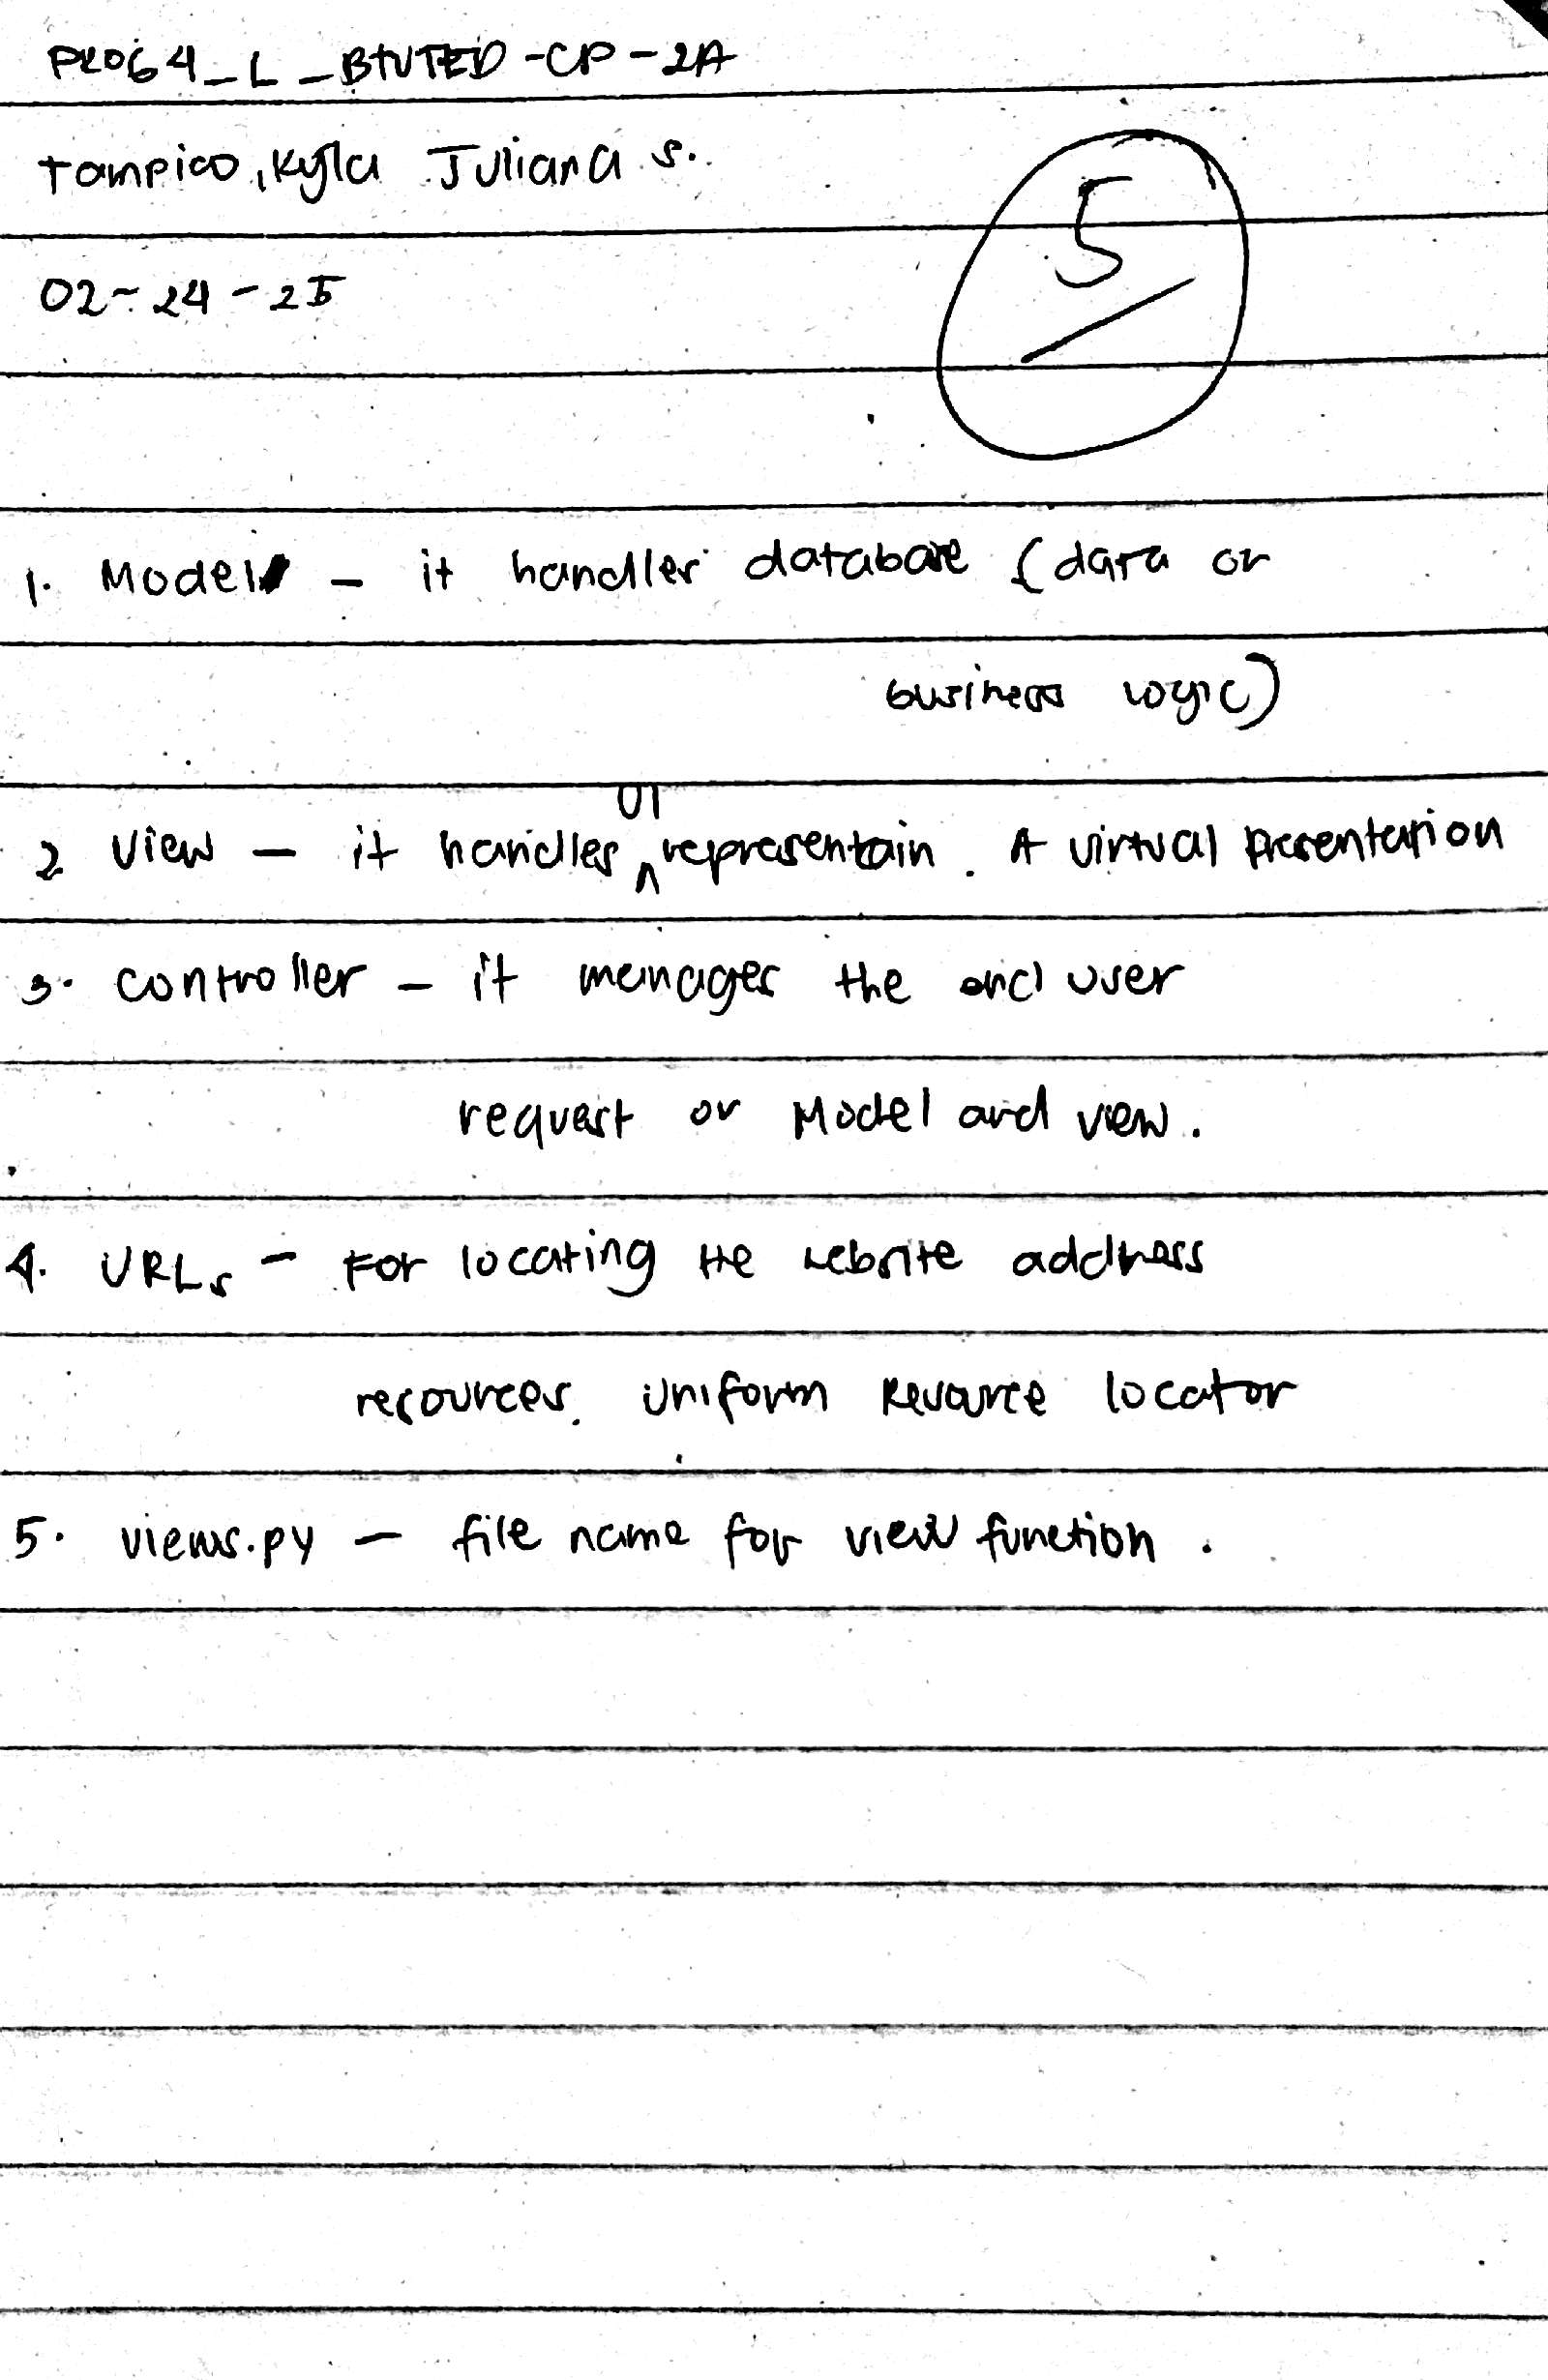 PROG4_L_BTVTED-CP-2A
Tampico, Kyla Juliana S.
02-24-25
5
1. Model - it handles database (data or
business logic)
UI
2 View - it handles ^ representain. A virtual presentation
3. controller - it manages the end user
request or Model and view.
4. URLs - For locating the website address
resources. Uniform Resource locator
5. views.py - file name for view function.